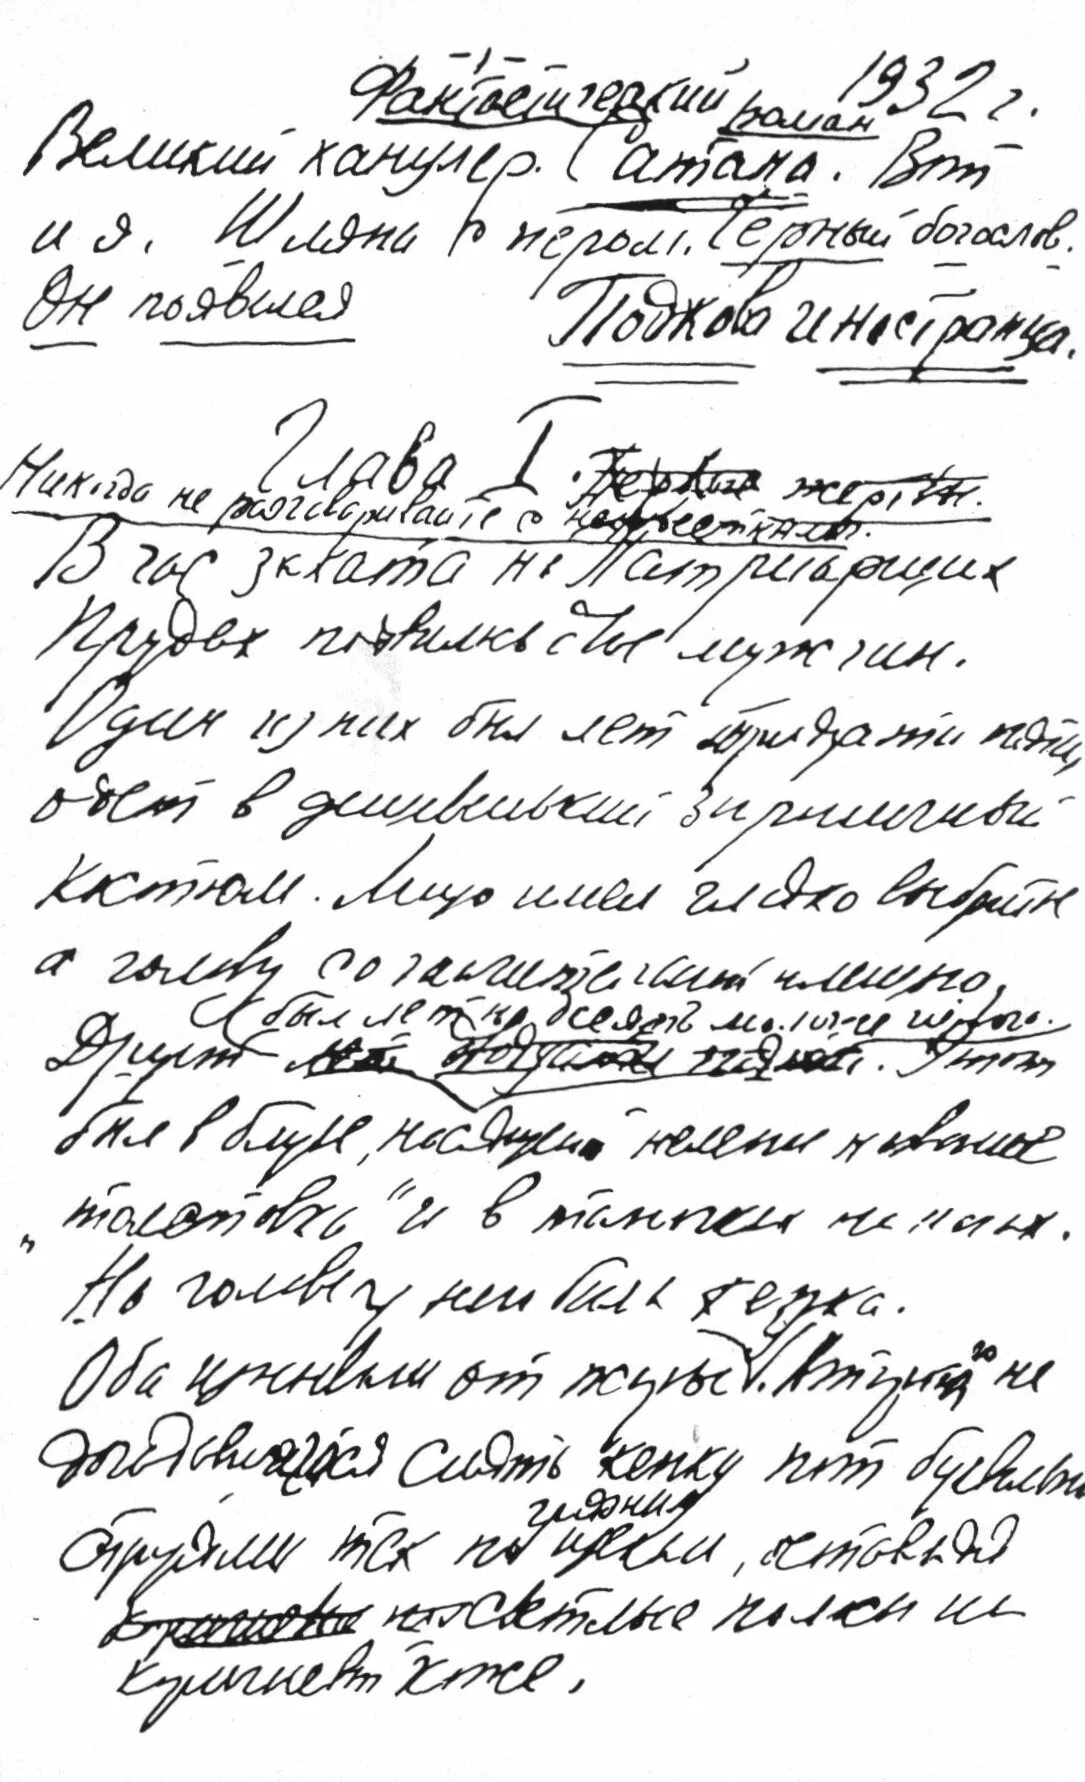 -1-
Фантастический роман 1932 г.
Великий канцлер. Сатана. Вот
и я. Шляпа с пером. Чёрный богослов.
Он появился Подкова иностранца.
Глава I. Первые жертвы.
Никогда не разговаривайте с неизвестными.
В час заката на Патриарших
Прудах появилось двое мужчин.
Один из них был лет тридцати пяти,
одет в дешевенький заграничный
костюм. Лицо имел гладко выбритое
а голову со значительной плешью.
был лет на десять моложе первого.
Другой лет. Этот
был в блузе, носящей нелепое название
„толстовка" и в тапочках на ногах.
На голове у него была кепка.
Оба изнывали от жары. У второго не
догадавшегося снять кепку пот буквально
грязным
струями тек по щекам, оставляя
светлые полосы на
коричневой коже.